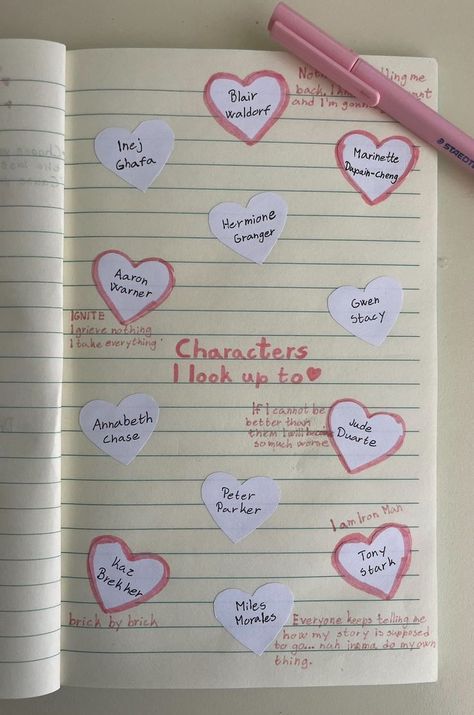 Blair
Waldorf
lling me
back. I
and I'm
Inej
Ghafa
Marinette
Dupain-cheng
Hermione
Granger
Aaron
Warner
IGNITE
I grieve nothing
I take everything
Gwen
Stacy
Characters
I look up to
Annabeth
Chase
If I cannot be
better than
them I will
so much worse
Jude
Duarte
Peter
Parker
I am Iron Man
Tony
Stark
Kaz
Brekher
brick by brick
Miles
Morales
Everyone keeps telling me
how my story is supposed
to go... nah imma do my own
thing.
STAEDTL